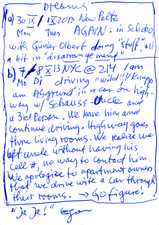 Dreams
a) 30 IX / 1 IX 2019 New Paltz
Mon Tues AGAIN: in School
with Günter Olbert doing "stuff", all
a bit in "disarrangement"
b) 7/8 X 13 NYC @ 2:14 am
Mo Di driving w/
am Asground in a car on high-
way w/ Schauss-Uncle and
a 3rd Person. We leave him and
continue driving. Highway goes
three living rooms. We realize we
left uncle without having his
cell #, no way to contact him.
We apologize to apartment owners
that we drive with a car through
their rooms. → Go figure!
"Je Je!"